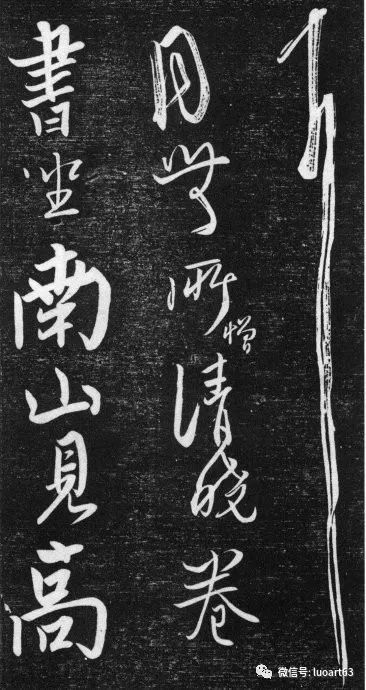 耳
目無所憎清曉卷
書坐南山見高
微信号: luoart63